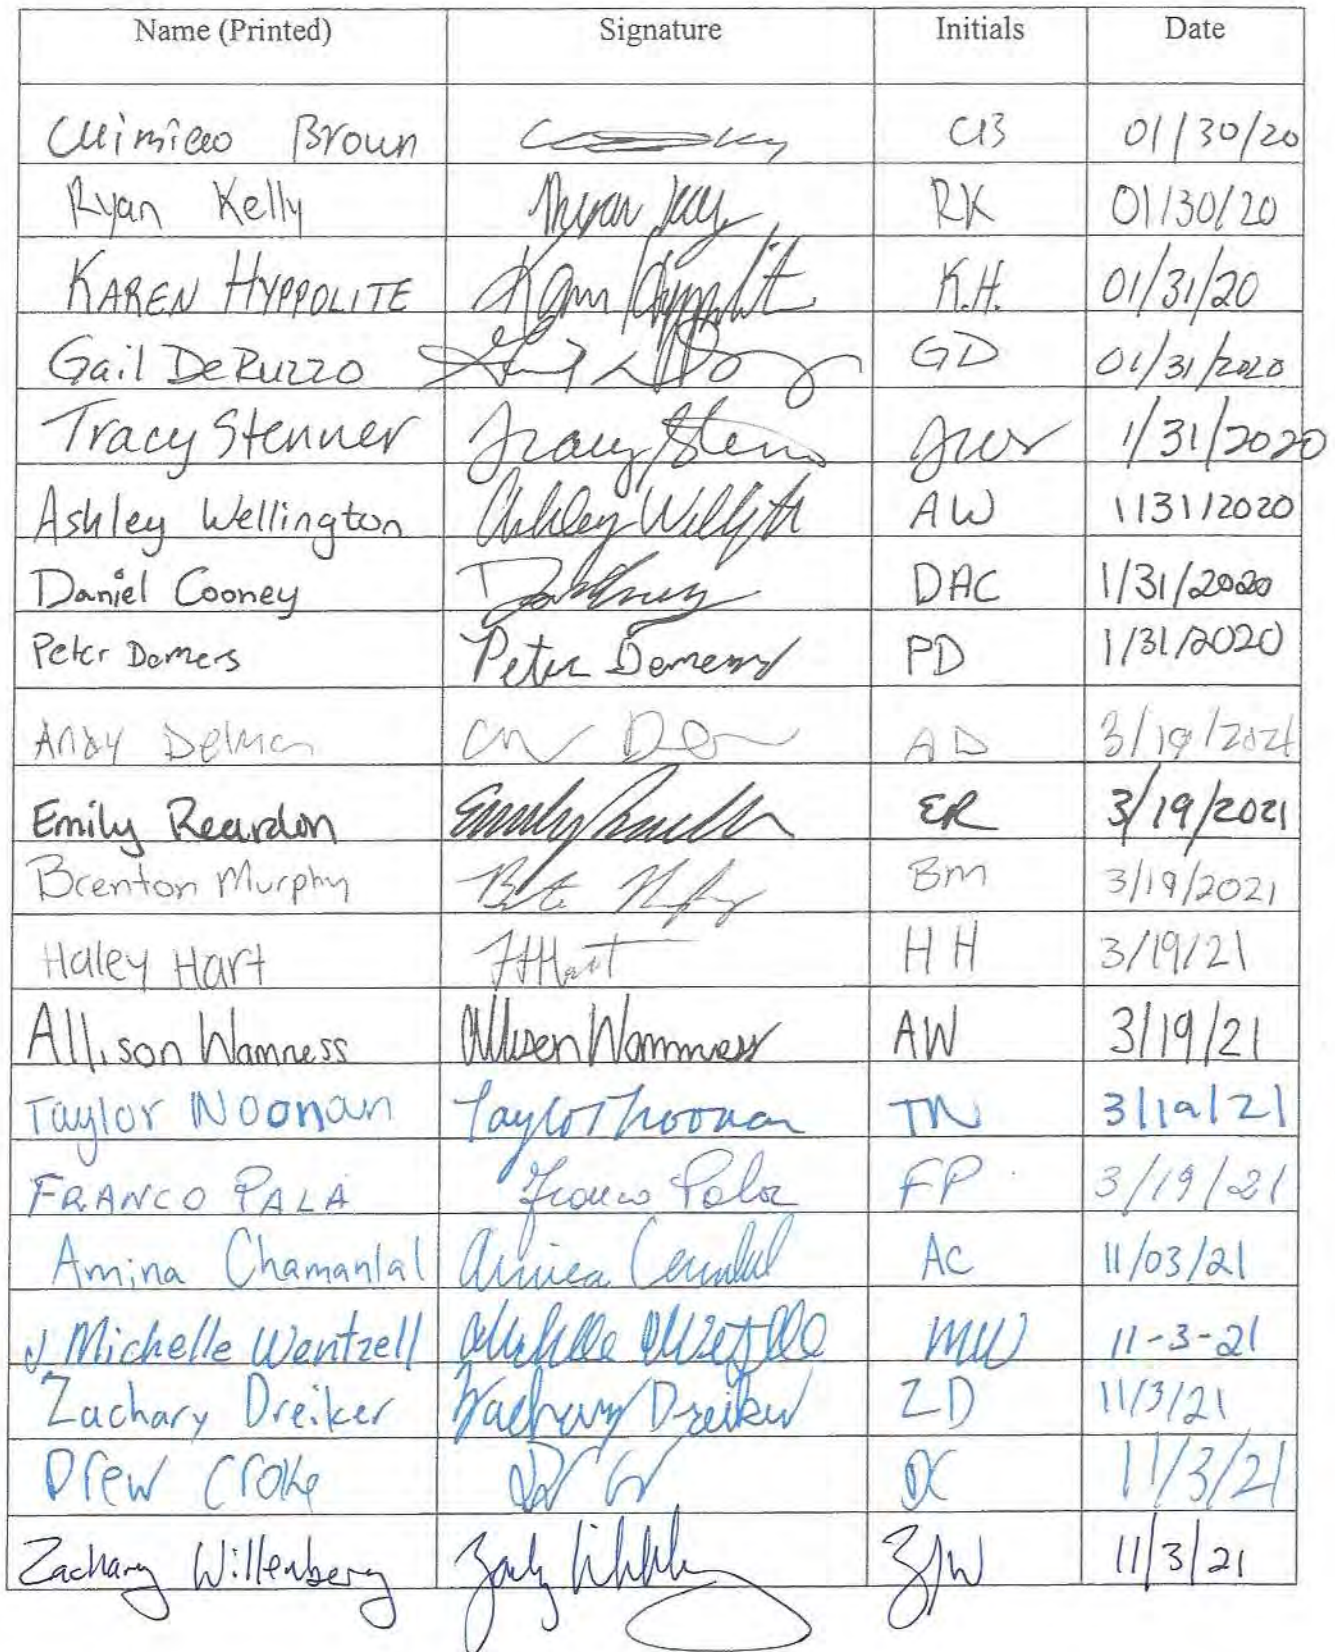 Name (Printed) Signature Initials Date
Brown CB 01/30/20
Ryan Kelly Ryan Kelly RK 01/30/20
KAREN HYPPOLITE Karen Hyppolite K.H. 01/31/20
Gail DeRuzzo GD 01/31/2020
Tracy Stenner Tracy Sten 1/31/2020
Ashley Wellington Ashley AW 1/31/2020
Daniel Cooney DAC 1/31/2020
Peter Demers Peter Demers PD 1/31/2020
Andy AD 3/19/2021
Emily Reardon Emily ER 3/19/2021
Brenton Murphy BM 3/19/2021
Haley Hart HHart HH 3/19/21
Allison Wamness Allison Wamness AW 3/19/21
Taylor Noonan Taylor Noonan TN 3/19/21
FRANCO PALA Franco Pala FP 3/19/21
Amina Chamanlal Amina AC 11/03/21
J Michelle Wentzell Michelle MW 11-3-21
Zachary Dreiker Zachary Dreiker ZD 11/3/21
Drew Croke DC 11/3/21
Zachary Willenberg ZJW 11/3/21